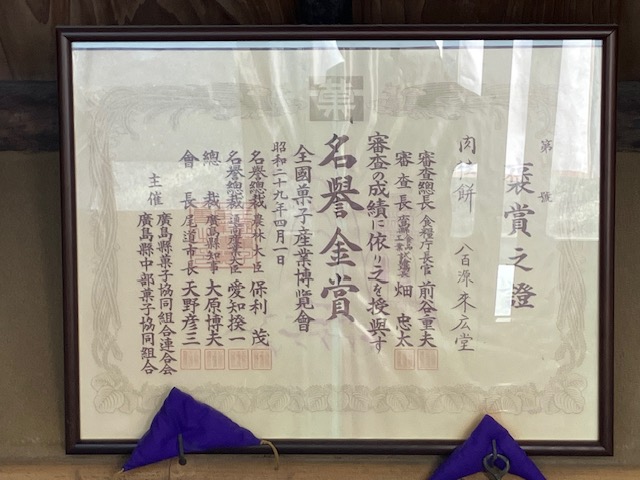 菓
第 號
褒賞之證
肉桂餅 八百源来広堂
審査總長 食糧庁長官 前谷重夫
審査長 畑忠太
審査の成績に依り之を授與す
名譽金賞
全國菓子産業博覧會
昭和二十九年四月一日
名誉總裁 農林大臣 保利茂
名誉總裁 通商産業大臣 愛知揆一
總裁 廣島縣知事 大原博夫
會長 尾道市長 天野彦三
主催 廣島縣菓子協同組合連合会
廣島縣中部菓子協同組合